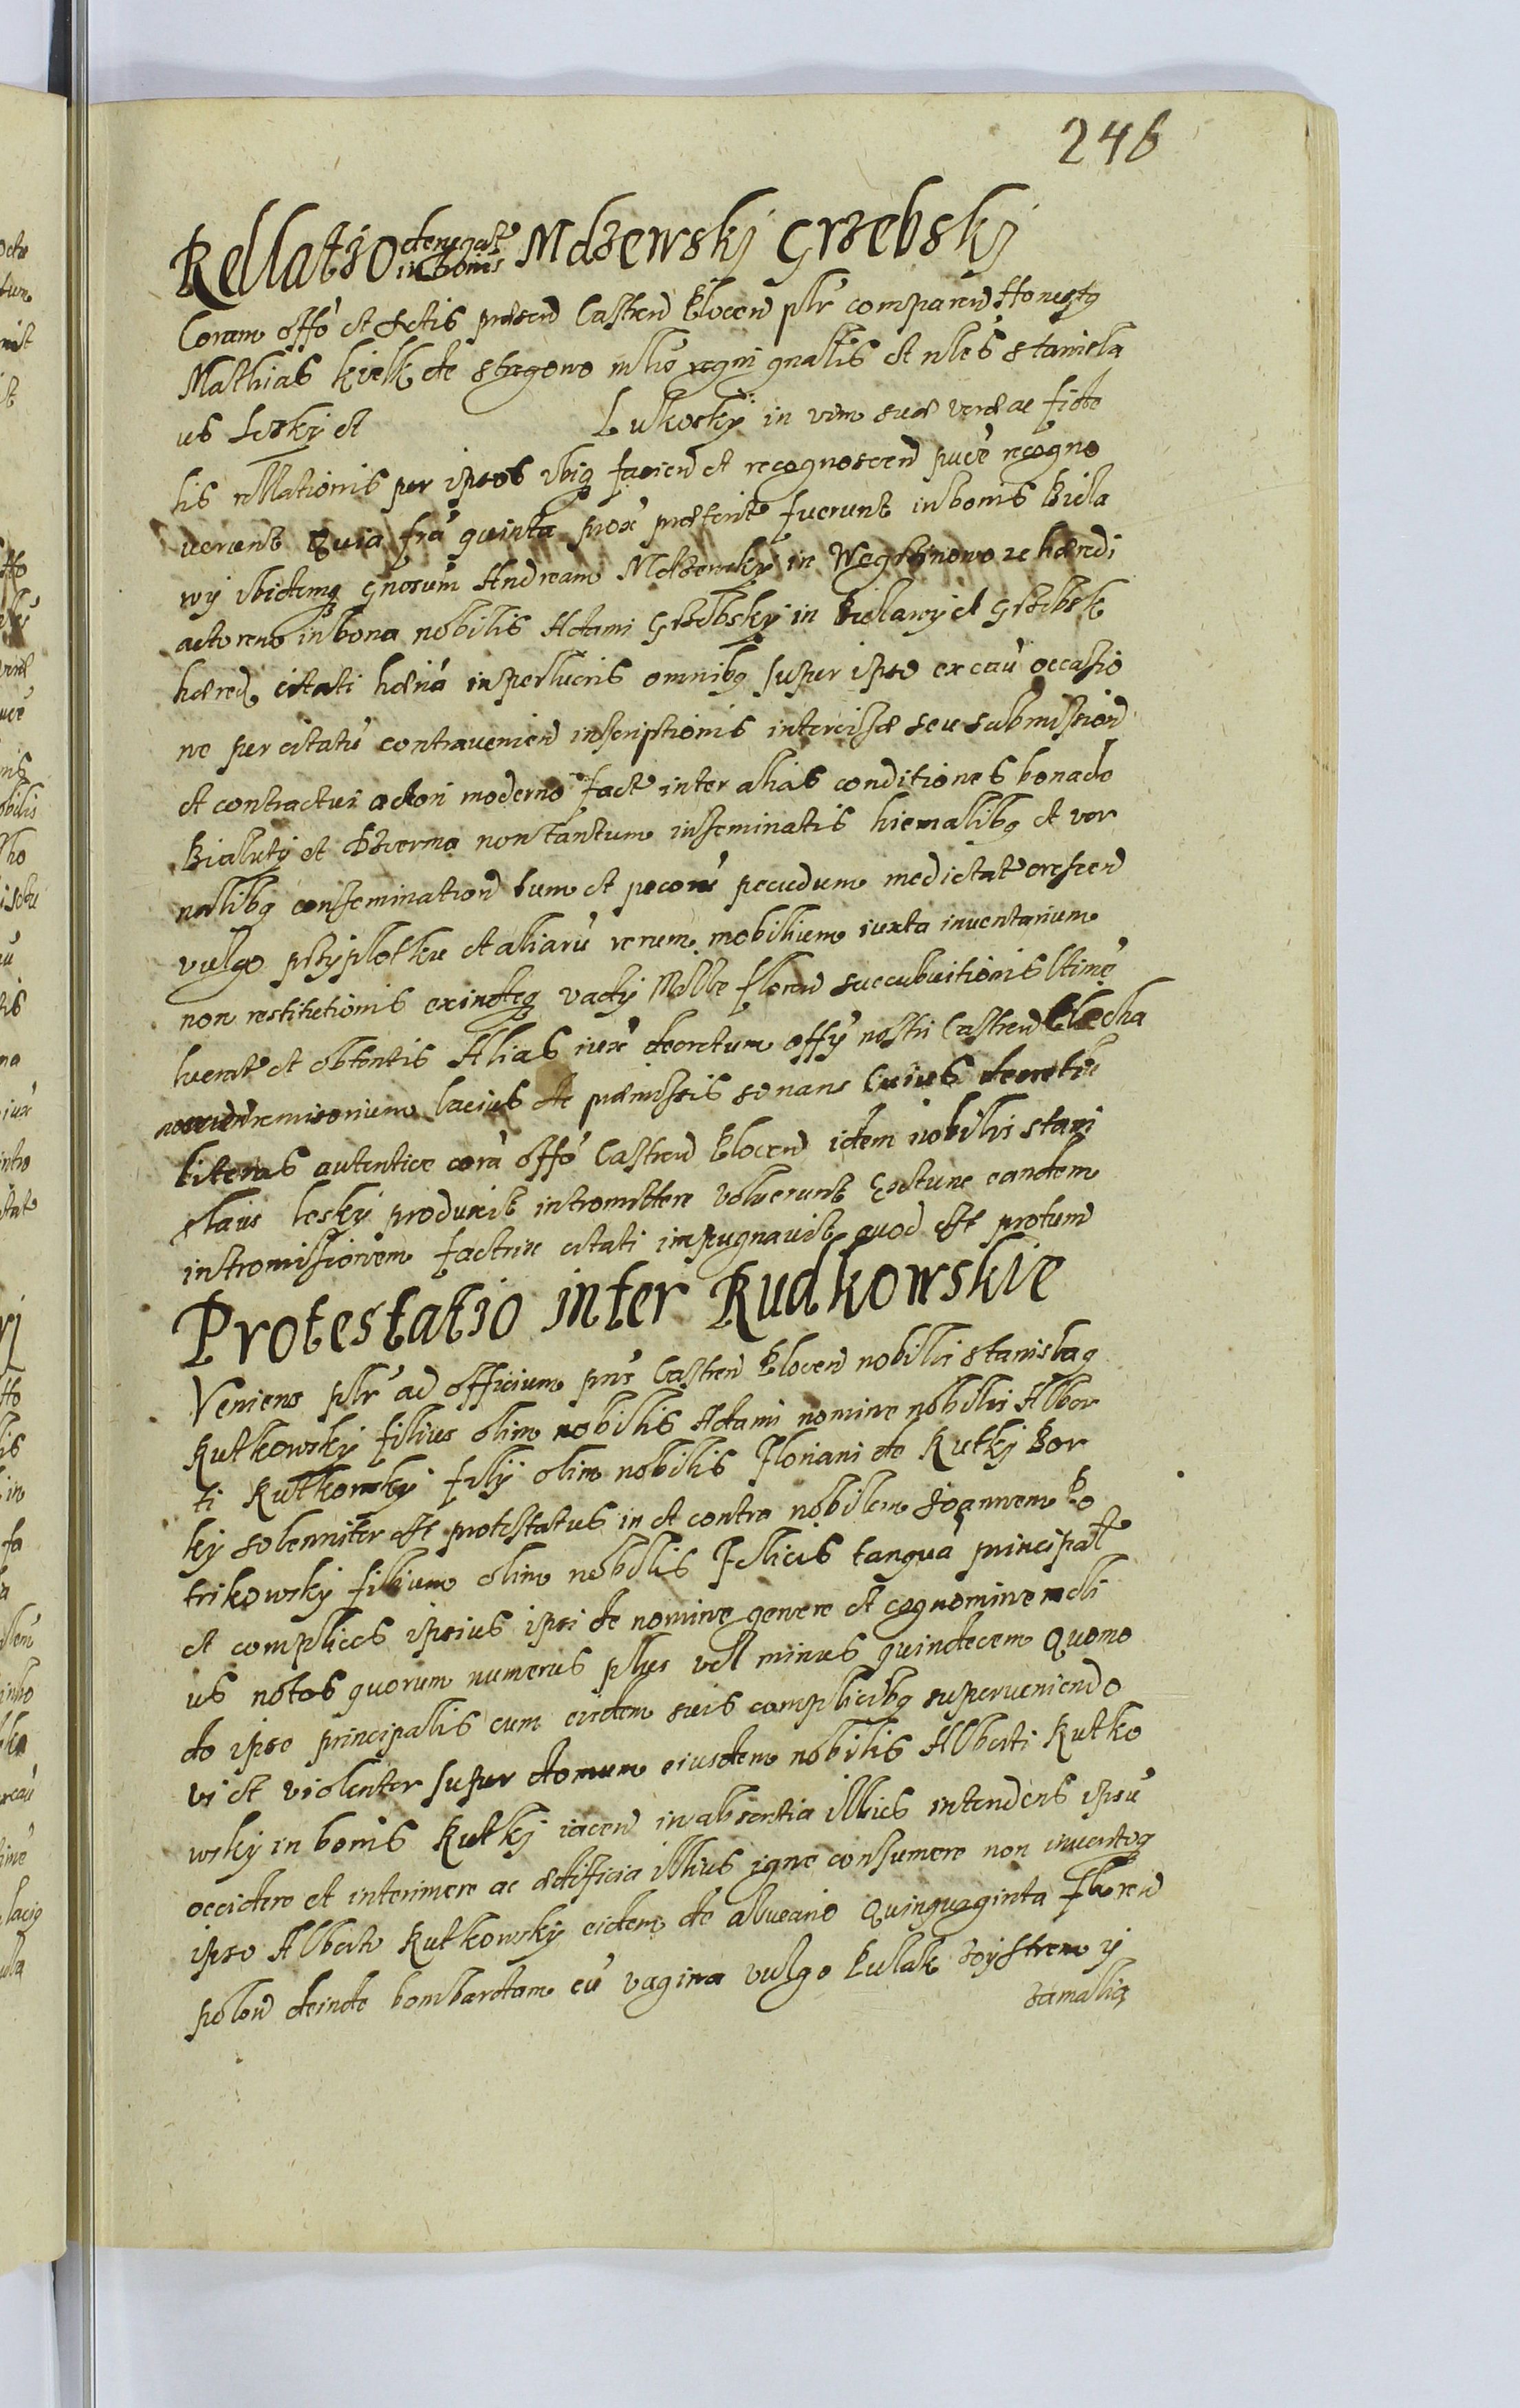 246
Rellatio denegate in bonis Mdzewskj Grzebskj
Coram offo et Actis praesen Castren Plocen plr comparen Honestq
Mathias kielk de Stregowo mlio regni gnalis et nles Stanisla
us Leskj et Lutkoskj in vim suae verae ac fide
lis rellationis per ipsos ibiq facien et recognoscen puce recogno
verunt Quia fra quinta prox praeterit fuerunt in bonis Biela
wy ibidemq gnosum Andream Mdzewskj in Wegrzinowo ze haeredi
actorem in bona nobilis Adami Grzebskj in Biellawy et Grzebsk
haered citati in perlucris omnibq super ipso ex cau occasio
ne per citatu contravenien inscriptionis intercisae seu submission
et contractui actori moderno fact inter alias conditiones bona de
Bialuty et Dzierma non tantum inseminatis hiemalibq et ver
nalibq consemination tum et pecorū pecudum medietat crescen
vulgo przyplotku et aliarū rerum mobilium iuxta inventarium
non restitutionis exindeq vadij Mille floren succubuitionis
luerat et obtentis Alias iux decretum offy nostri Castren Ciecha
novien remisorium lacius de praemissis sonans Cuius decreti
literas autentice corā offo Castren Plocen idem nobilis Stani
slaus Lesky produxit intromittere voluerunt Extunc eandem
intromissionem factrix citati impugnavit quod est protund
Protestatio inter Rudkowskie
Veniens plr ad officium pns Castren Plocen nobilis Stanislaq
Rutkowskj filius olim nobilis Adami nomine nobilis Alber
ti Rutkowskj filÿ olim nobilis Floriani de Rutkj Bor
kj solenniter est protestatus in et contra nobilem Joannem Po
trikowskj filium olim nobilis Felicis tanquā principal
et complices ipsius ipsi de nomine genere et cognomine meli
us notos quorum numerus plus vel minus quindecem Quomo
do ipse principalis cum eisdem suis complicibq superveniendo
vi et violenter super domum eiusdem nobilis Alberti Rutko
wskj in bonis Rutkj iacen in absentia illius intendens ipsū
occidere et interimere ac aedificia illius igne consumere non inventoq
ipso Alberto Rutkowskj eidem de alveario Quinquaginta Floren
polon deinde bombardam cū vagina vulgo Pullak zoystrem y